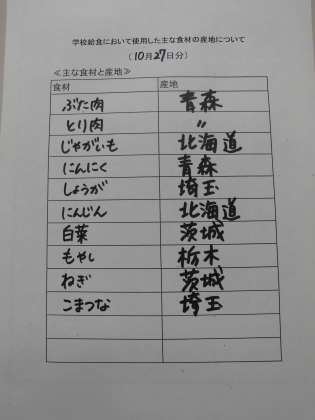 学校給食において使用した主な食材の産地について
(10月27日分)
≪主な食材と産地≫
食材 産地
ぶた肉 青森
とり肉 〃
じゃがいも 北海道
にんにく 青森
しょうが 埼玉
にんじん 北海道
白菜 茨城
もやし 栃木
ねぎ 茨城
こまつな 埼玉